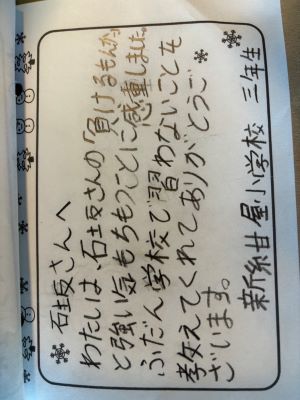 石坂さんへ
わたしは、石坂さんの「負けるもんか」
と強い気もちもつことに感動しました。
ふだん学校で習わないことも
教えてくれてありがとうご
ざいます。
新紺屋小学校 三年生